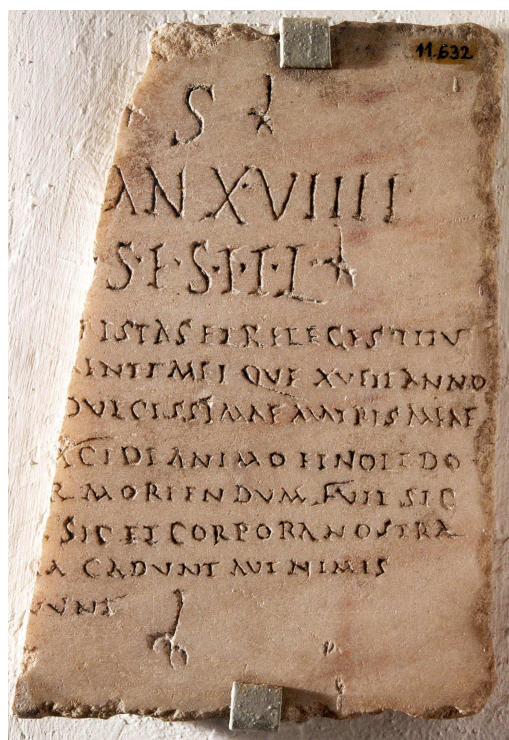 11.632
S
AN XVIIII
S·E·S·T·T·L
ISTAS ET RELEGES TITV
QVE ANNO
DVLCISSIMAE MATRIS MEAE
XCIDE ANIMO ET NOLI DO
R MORIENDVM FVIT SIC
SIC ET CORPORA NOSTRA
A CADVNT AVT NIMIS
VNT